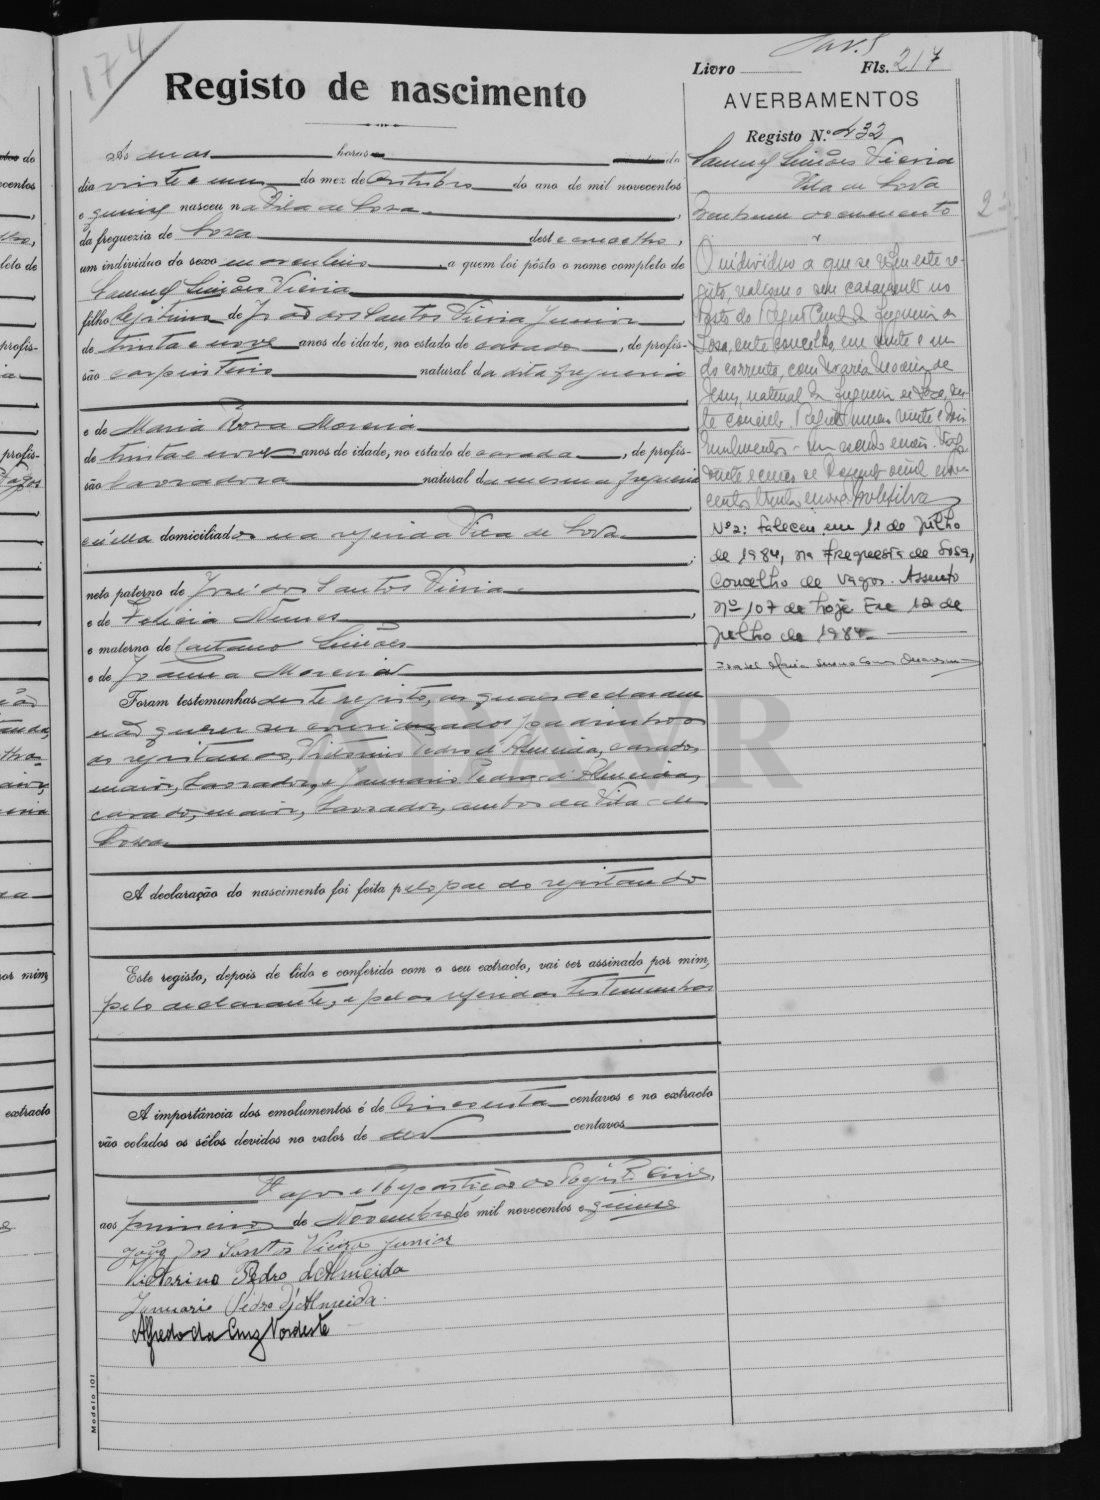 174
Livro Fls. 217
Registo de nascimento
AVERBAMENTOS
Registo N.º 432
Ás duas horas da
dia vinte e um do mez de Outubro do ano de mil novecentos
e quinze nasceu na Vila de Soza,
da freguezia de Soza deste concelho,
um individuo do sexo masculino a quem foi pôsto o nome completo de
Samuel Simões Vieira
filho legitimo de João dos Santos Vieira Junior,
de trinta e nove anos de idade, no estado de casado, de profis-
são carpinteiro natural da dita freguesia
e de Maria Rosa Moreira
de trinta e nove anos de idade, no estado de casada, de profis-
são lavradora natural da mesma freguesia
e nella domiciliados na referida Vila de Soza
neto paterno de José dos Santos Vieira
e de Felicia Nunes,
e materno de Caetano Simões
e de Joanna Moreira
Foram testemunhas deste registo, as quaes declararam
não querer ser considerados padrinhos
do registando, Vitorino Pedro d'Almeida, casado,
maior, lavrador, e Januario Pedro d'Almeida,
casado, maior, lavrador, ambos da Vila de
Soza
A declaração do nascimento foi feita pelo pae do registando
Este registo, depois de lido e conferido com o seu extracto, vai ser assinado por mim,
pelo declarante, e pelas referidas testemunhas
A importância dos emolumentos é de cincoenta centavos e no extracto
vão colados os sêlos devidos no valor de dez centavos
Vagos e Repartição do Registo Civil,
aos primeiro de Novembro de mil novecentos e quinze
João dos Santos Vieira Junior
Victorino Pedro d'Almeida
Januario Pedro d'Almeida
Alfredo da Cruz Nordeste
Modelo 101
Samuel Simões Vieira
Vila de Soza
O individuo a que se refere este re-
gisto, realisou o seu casamento no
Posto do Registo Civil da freguesia de
Soza, este concelho, em vinte e um
do corrente, com Maria de
Jesus, natural da freguesia de Soza, des-
te concelho. Registo numero vinte e dois
Emolumentos - um escudo
vinte e cinco de Dezembro de mil nove
centos trinta e nove
Nº 2: Faleceu em 11 de Julho
de 1984, na Freguesia de Sosa,
Concelho de Vagos. Assento
nº 107 de hoje. Em 12 de
Julho de 1984
2
ADAVR